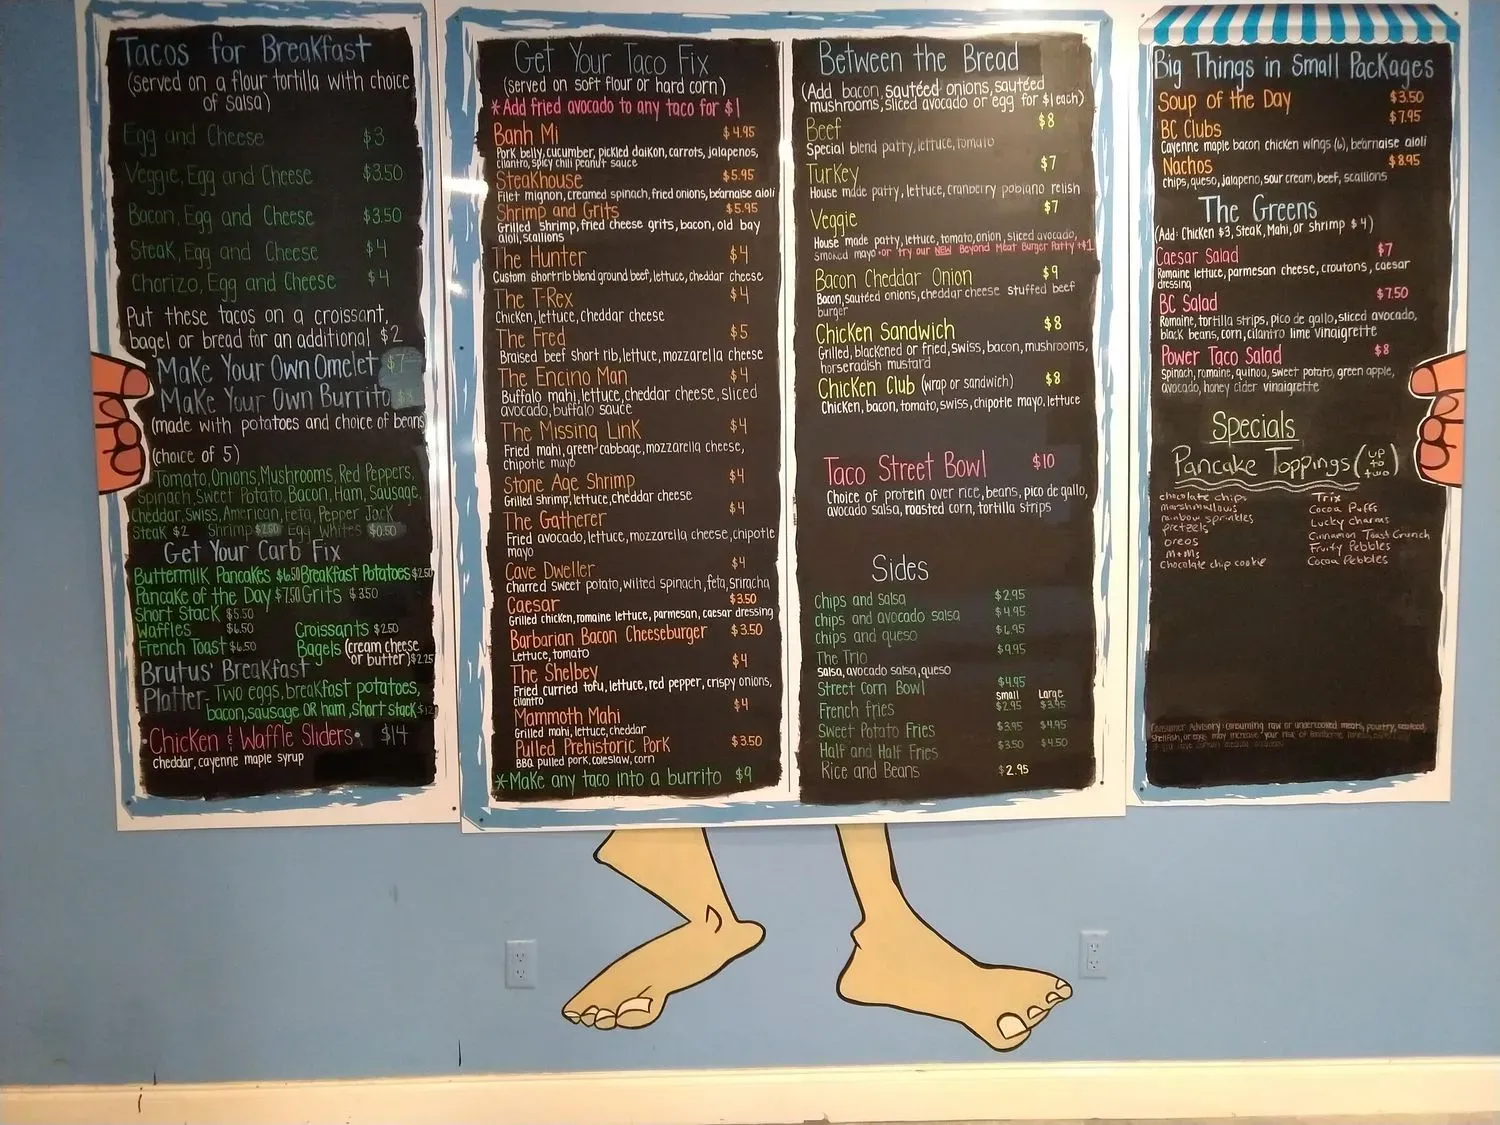 Tacos for Breakfast
(served on a flour tortilla with choice
of salsa)
Egg and Cheese $3
Veggie, Egg and Cheese $3.50
Bacon, Egg and Cheese $3.50
Steak, Egg and Cheese $4
Chorizo, Egg and Cheese $4
Put these tacos on a croissant,
bagel or bread for an additional $2
Make Your Own Omelet $7
Make Your Own Burrito
(made with potatoes and choice of beans)
(choice of 5)
Tomato, Onions, Mushrooms, Red Peppers,
Spinach, Sweet Potato, Bacon, Ham, Sausage,
Cheddar, Swiss, American, Feta, Pepper Jack
Steak $2 Shrimp $2.50 Egg Whites $0.50
Get Your Carb Fix
Buttermilk Pancakes $6.50 Breakfast Potatoes $2.50
Pancake of the Day $7.50 Grits $3.50
Short Stack $5.50
Waffles $6.50 Croissants $2.50
French Toast $6.50 Bagels (cream cheese
or butter) $2.25
Brutus' Breakfast
Platter- Two eggs, breakfast potatoes,
bacon, sausage OR ham, short stack
•Chicken & Waffle Sliders• $14
cheddar, cayenne maple syrup
Get Your Taco Fix
(served on soft flour or hard corn)
*Add fried avocado to any taco for $1
Banh Mi $4.95
Pork belly, cucumber, pickled daikon, carrots, jalapenos,
cilantro, spicy chili peanut sauce
Steakhouse $5.95
Filet mignon, creamed spinach, fried onions, béarnaise aioli
Shrimp and Grits $5.95
Grilled shrimp, fried cheese grits, bacon, old bay
aioli, scallions
The Hunter $4
Custom shortrib blend ground beef, lettuce, cheddar cheese
The T-Rex $4
Chicken, lettuce, cheddar cheese
The Fred $5
Braised beef short rib, lettuce, mozzarella cheese
The Encino Man $4
Buffalo mahi, lettuce, cheddar cheese, sliced
avocado, buffalo sauce
The Missing Link $4
Fried mahi, green cabbage, mozzarella cheese,
chipotle mayo
Stone Age Shrimp $4
Grilled shrimp, lettuce, cheddar cheese
The Gatherer $4
Fried avocado, lettuce, mozzarella cheese, chipotle
mayo
Cave Dweller $4
Charred sweet potato, wilted spinach, feta, sriracha
Caesar $3.50
Grilled chicken, romaine lettuce, parmesan, caesar dressing
Barbarian Bacon Cheeseburger $3.50
Lettuce, tomato
The Shelbey $4
Fried curried tofu, lettuce, red pepper, crispy onions,
cilantro
Mammoth Mahi $4
Grilled mahi, lettuce, cheddar
Pulled Prehistoric Pork $3.50
BBQ pulled pork, coleslaw, corn
*Make any taco into a burrito $9
Between the Bread
(Add bacon, sautéed onions, sautéed
mushrooms, sliced avocado or egg for $1 each)
Beef $8
Special blend patty, lettuce, tomato
Turkey $7
House made patty, lettuce, cranberry poblano relish
Veggie $7
House made patty, lettuce, tomato, onion, sliced avocado,
smoked mayo •or Try our NEW Beyond Meat Burger Patty +$1
Bacon Cheddar Onion $9
Bacon, sautéed onions, cheddar cheese stuffed beef
burger
Chicken Sandwich $8
Grilled, blackened or fried, swiss, bacon, mushrooms,
horseradish mustard
Chicken Club (wrap or sandwich) $8
Chicken, bacon, tomato, swiss, chipotle mayo, lettuce
Taco Street Bowl $10
Choice of protein over rice, beans, pico de gallo,
avocado salsa, roasted corn, tortilla strips
Sides
Chips and salsa $2.95
chips and avocado salsa $4.95
chips and queso $6.95
The Trio $9.95
salsa, avocado salsa, queso
Street Corn Bowl $4.95
Small Large
French fries $2.95 $3.95
Sweet Potato Fries $3.95 $4.95
Half and Half Fries $3.50 $4.50
Rice and Beans $2.95
Big Things in Small Packages
Soup of the Day $3.50
BC Clubs $7.95
Cayenne maple bacon chicken wings (6), béarnaise aioli
Nachos $8.95
chips, queso, jalapeno, sour cream, beef, scallions
The Greens
(Add: Chicken $3, Steak, Mahi, or shrimp $4)
Caesar Salad $7
Romaine lettuce, parmesan cheese, croutons, caesar
dressing
BC Salad $7.50
Romaine, tortilla strips, pico de gallo, sliced avocado,
black beans, corn, cilantro lime vinaigrette
Power Taco Salad $8
Spinach, romaine, quinoa, sweet potato, green apple,
avocado, honey cider vinaigrette
Specials
Pancake Toppings (up to two)
chocolate chips Trix
marshmallows Cocoa Puffs
rainbow sprinkles Lucky charms
pretzels Cinnamon Toast Crunch
oreos Fruity Pebbles
M+Ms Cocoa Pebbles
chocolate chip cookie
Consumer Advisory: consuming raw or undercooked meats, poultry, seafood,
shellfish, or eggs may increase your risk of foodborne